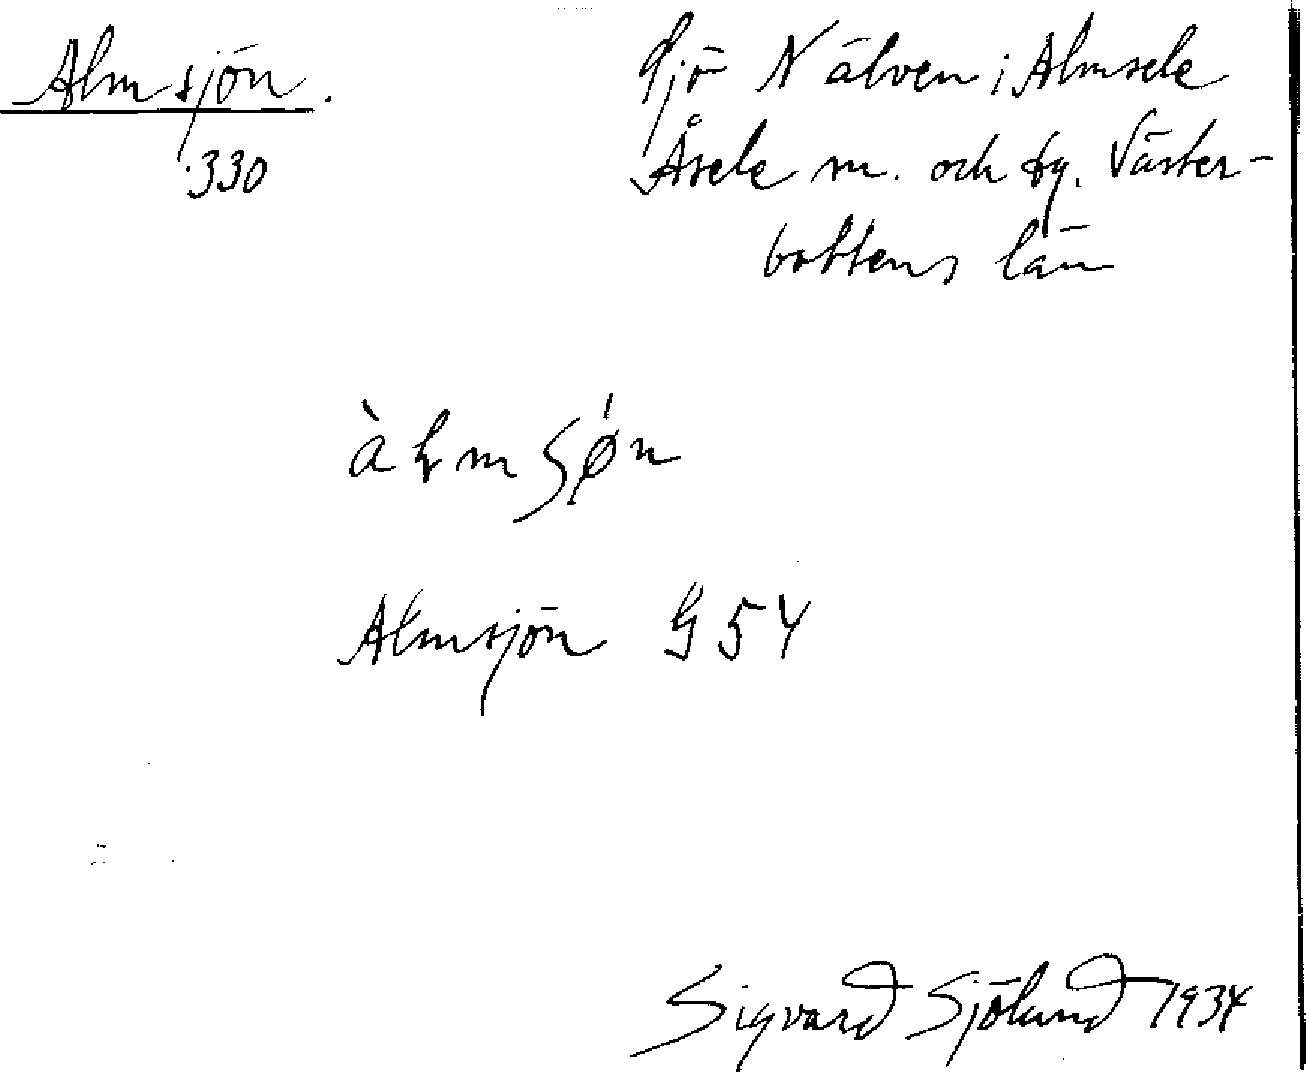 Almsjön.
330
Sjö N älven i Almsele
Åsele sn. och tg. Väster-
bottens län
Almsjön G 54
Sigvard Sjölund 1934